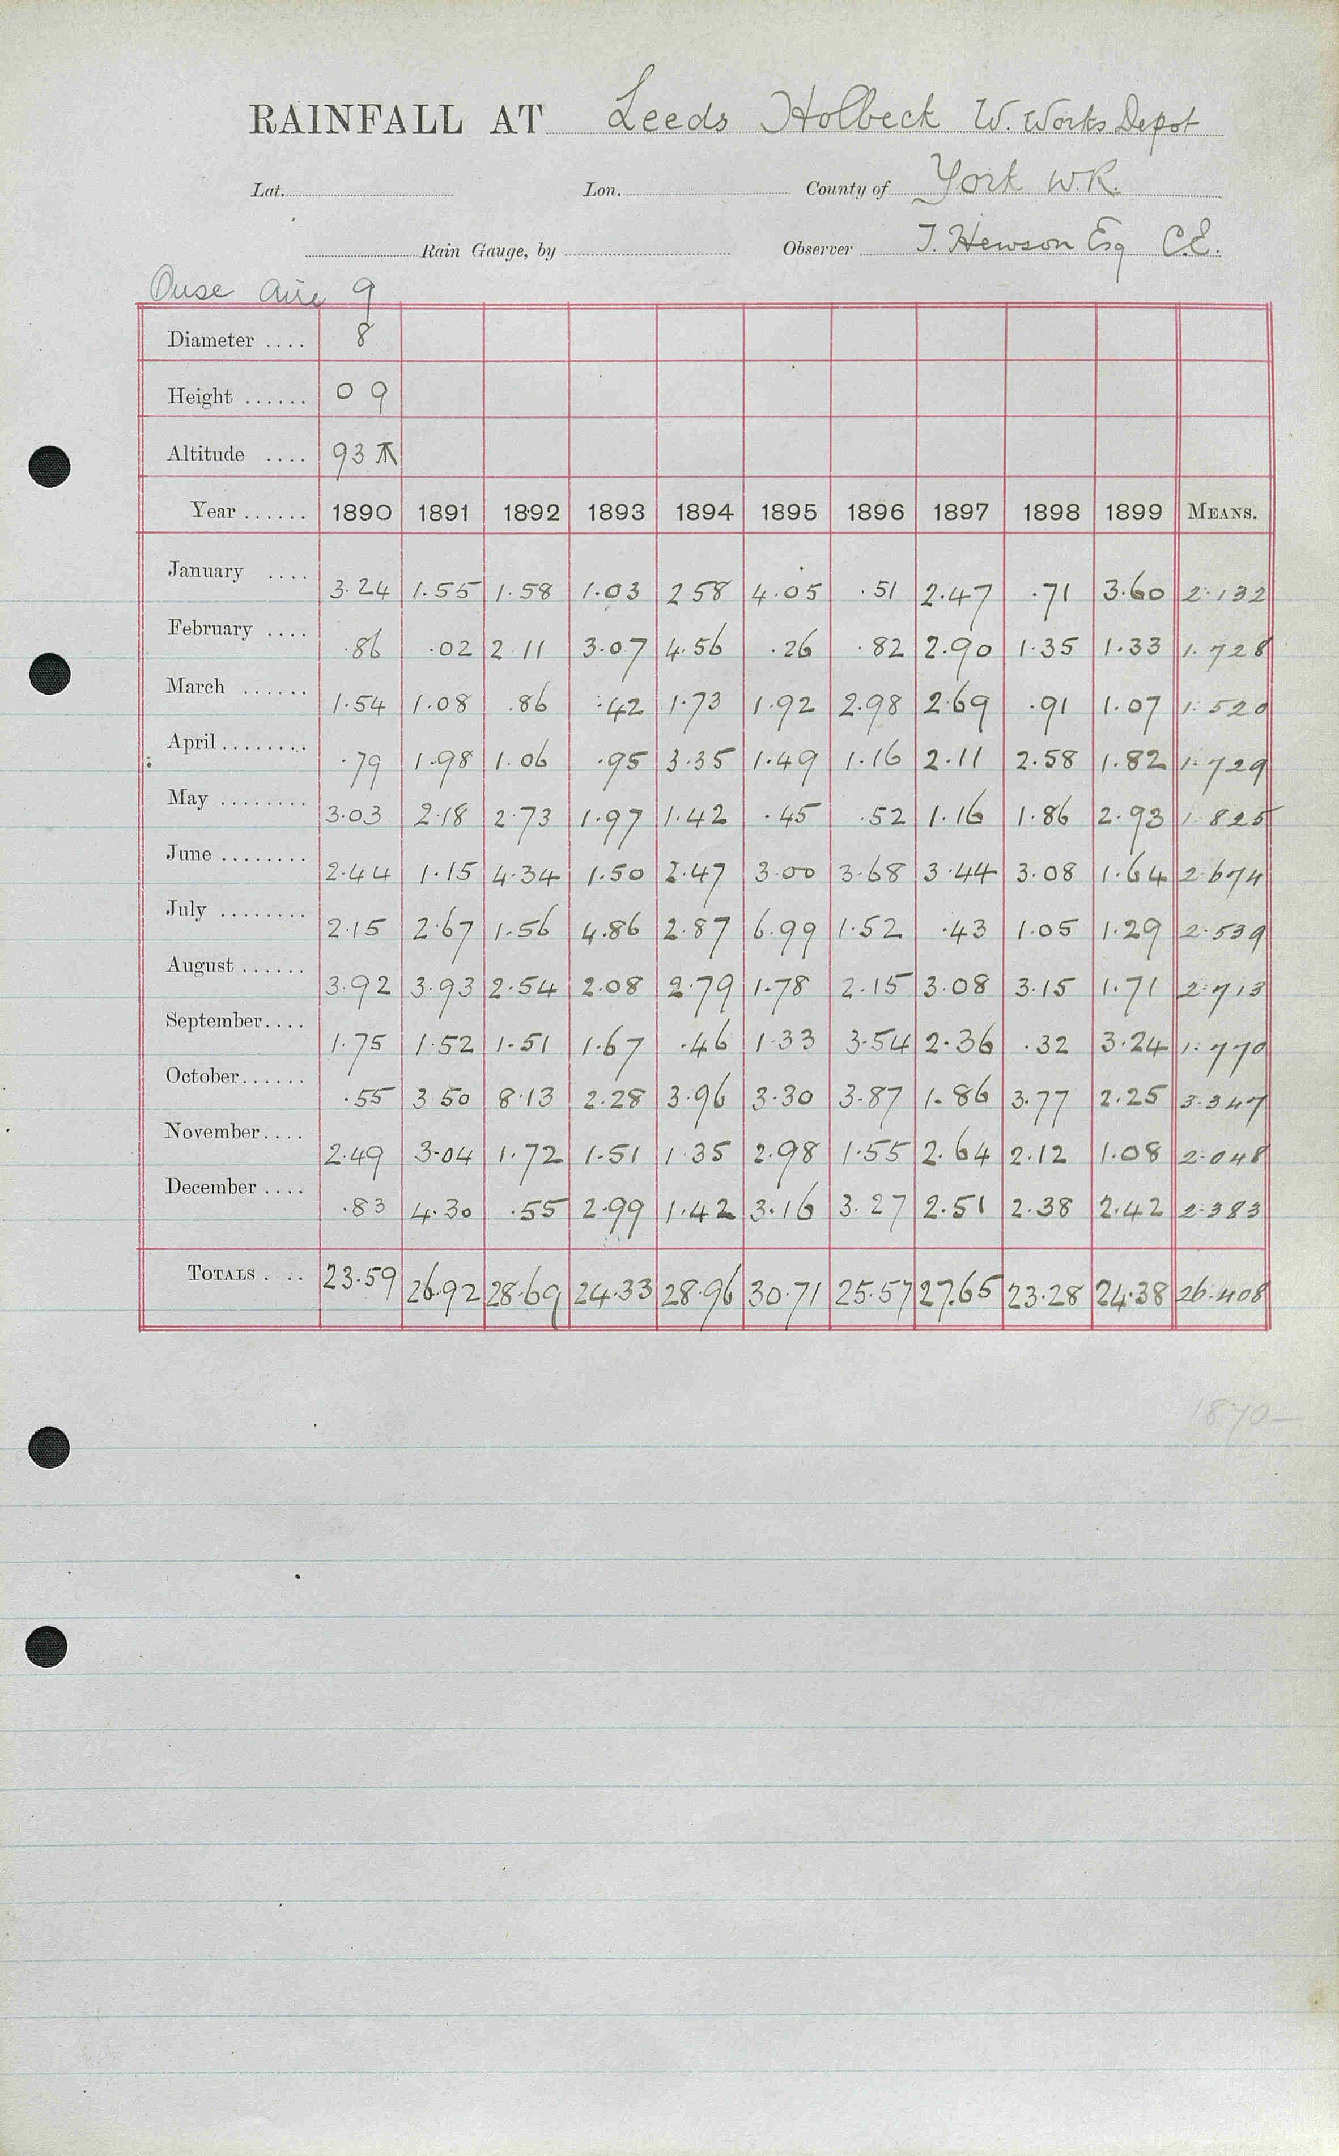 RAINFALL AT Leeds Holbeck W. Works Depot
Lat. Lon. County of York W.R.
Rain Gauge, by Observer T. Hewson Esq C.E.
Ouse Aire 9
Diameter .... 8
Height ...... 0 9
Altitude .... 93
Year ...... 1890 1891 1892 1893 1894 1895 1896 1897 1898 1899 MEANS.
January .... 3.24 1.55 1.58 1.03 2 58 4.05 .51 2.47 .71 3.60 2.132
February .... .86 .02 2 11 3.07 4.56 .26 .82 2.90 1.35 1.33 1.728
March ...... 1.54 1.08 .86 .42 1.73 1.92 2.98 2.69 .91 1.07 1.520
April ........ .79 1.98 1.06 .95 3.35 1.49 1.16 2.11 2.58 1.82 1.729
May ........ 3.03 2.18 2.73 1.97 1.42 .45 .52 1.16 1.86 2.93 1.825
June ........ 2.44 1.15 4.34 1.50 2.47 3.00 3.68 3.44 3.08 1.64 2.674
July ........ 2.15 2.67 1.56 4.86 2.87 6.99 1.52 .43 1.05 1.29 2.539
August ...... 3.92 3.93 2.54 2.08 2.79 1.78 2.15 3.08 3.15 1.71 2.713
September.... 1.75 1.52 1.51 1.67 .46 1.33 3.54 2.36 .32 3.24 1.770
October...... .55 3 50 8.13 2.28 3.96 3.30 3.87 1.86 3.77 2.25 3.347
November.... 2.49 3.04 1.72 1.51 1 35 2.98 1.55 2.64 2.12 1.08 2.048
December .... .83 4.30 .55 2.99 1.42 3.16 3.27 2.51 2.38 2.42 2.383
TOTALS . .. 23.59 26.92 28.69 24.33 28.96 30.71 25.57 27.65 23.28 24.38 26.408
1870-